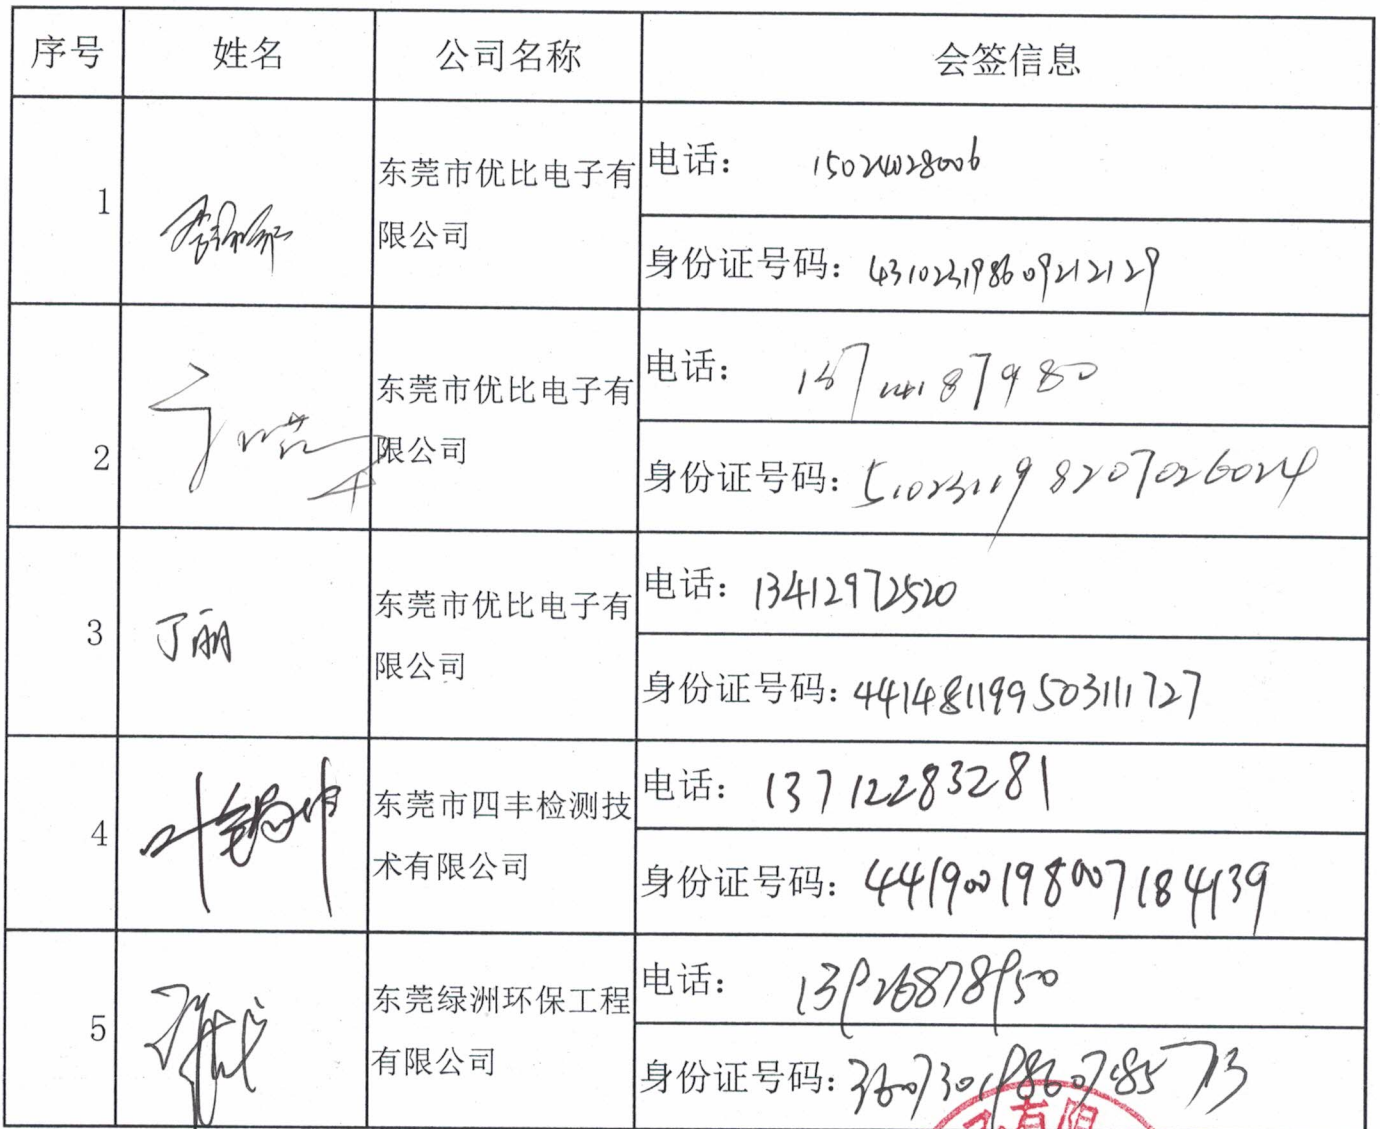 序号 姓名 公司名称 会签信息
1
东莞市优比电子有
限公司
电话: 15024028006
身份证号码: 431023198609212129
2
东莞市优比电子有
限公司
电话: 13714187980
身份证号码: 510231198207026024
3 丁丽
东莞市优比电子有
限公司
电话: 13412972520
身份证号码: 441481199503111727
4 叶锡坤
东莞市四丰检测技
术有限公司
电话: 13712283281
身份证号码: 441900198007184139
5
东莞绿洲环保工程
有限公司
电话: 13926878950
身份证号码:
有限